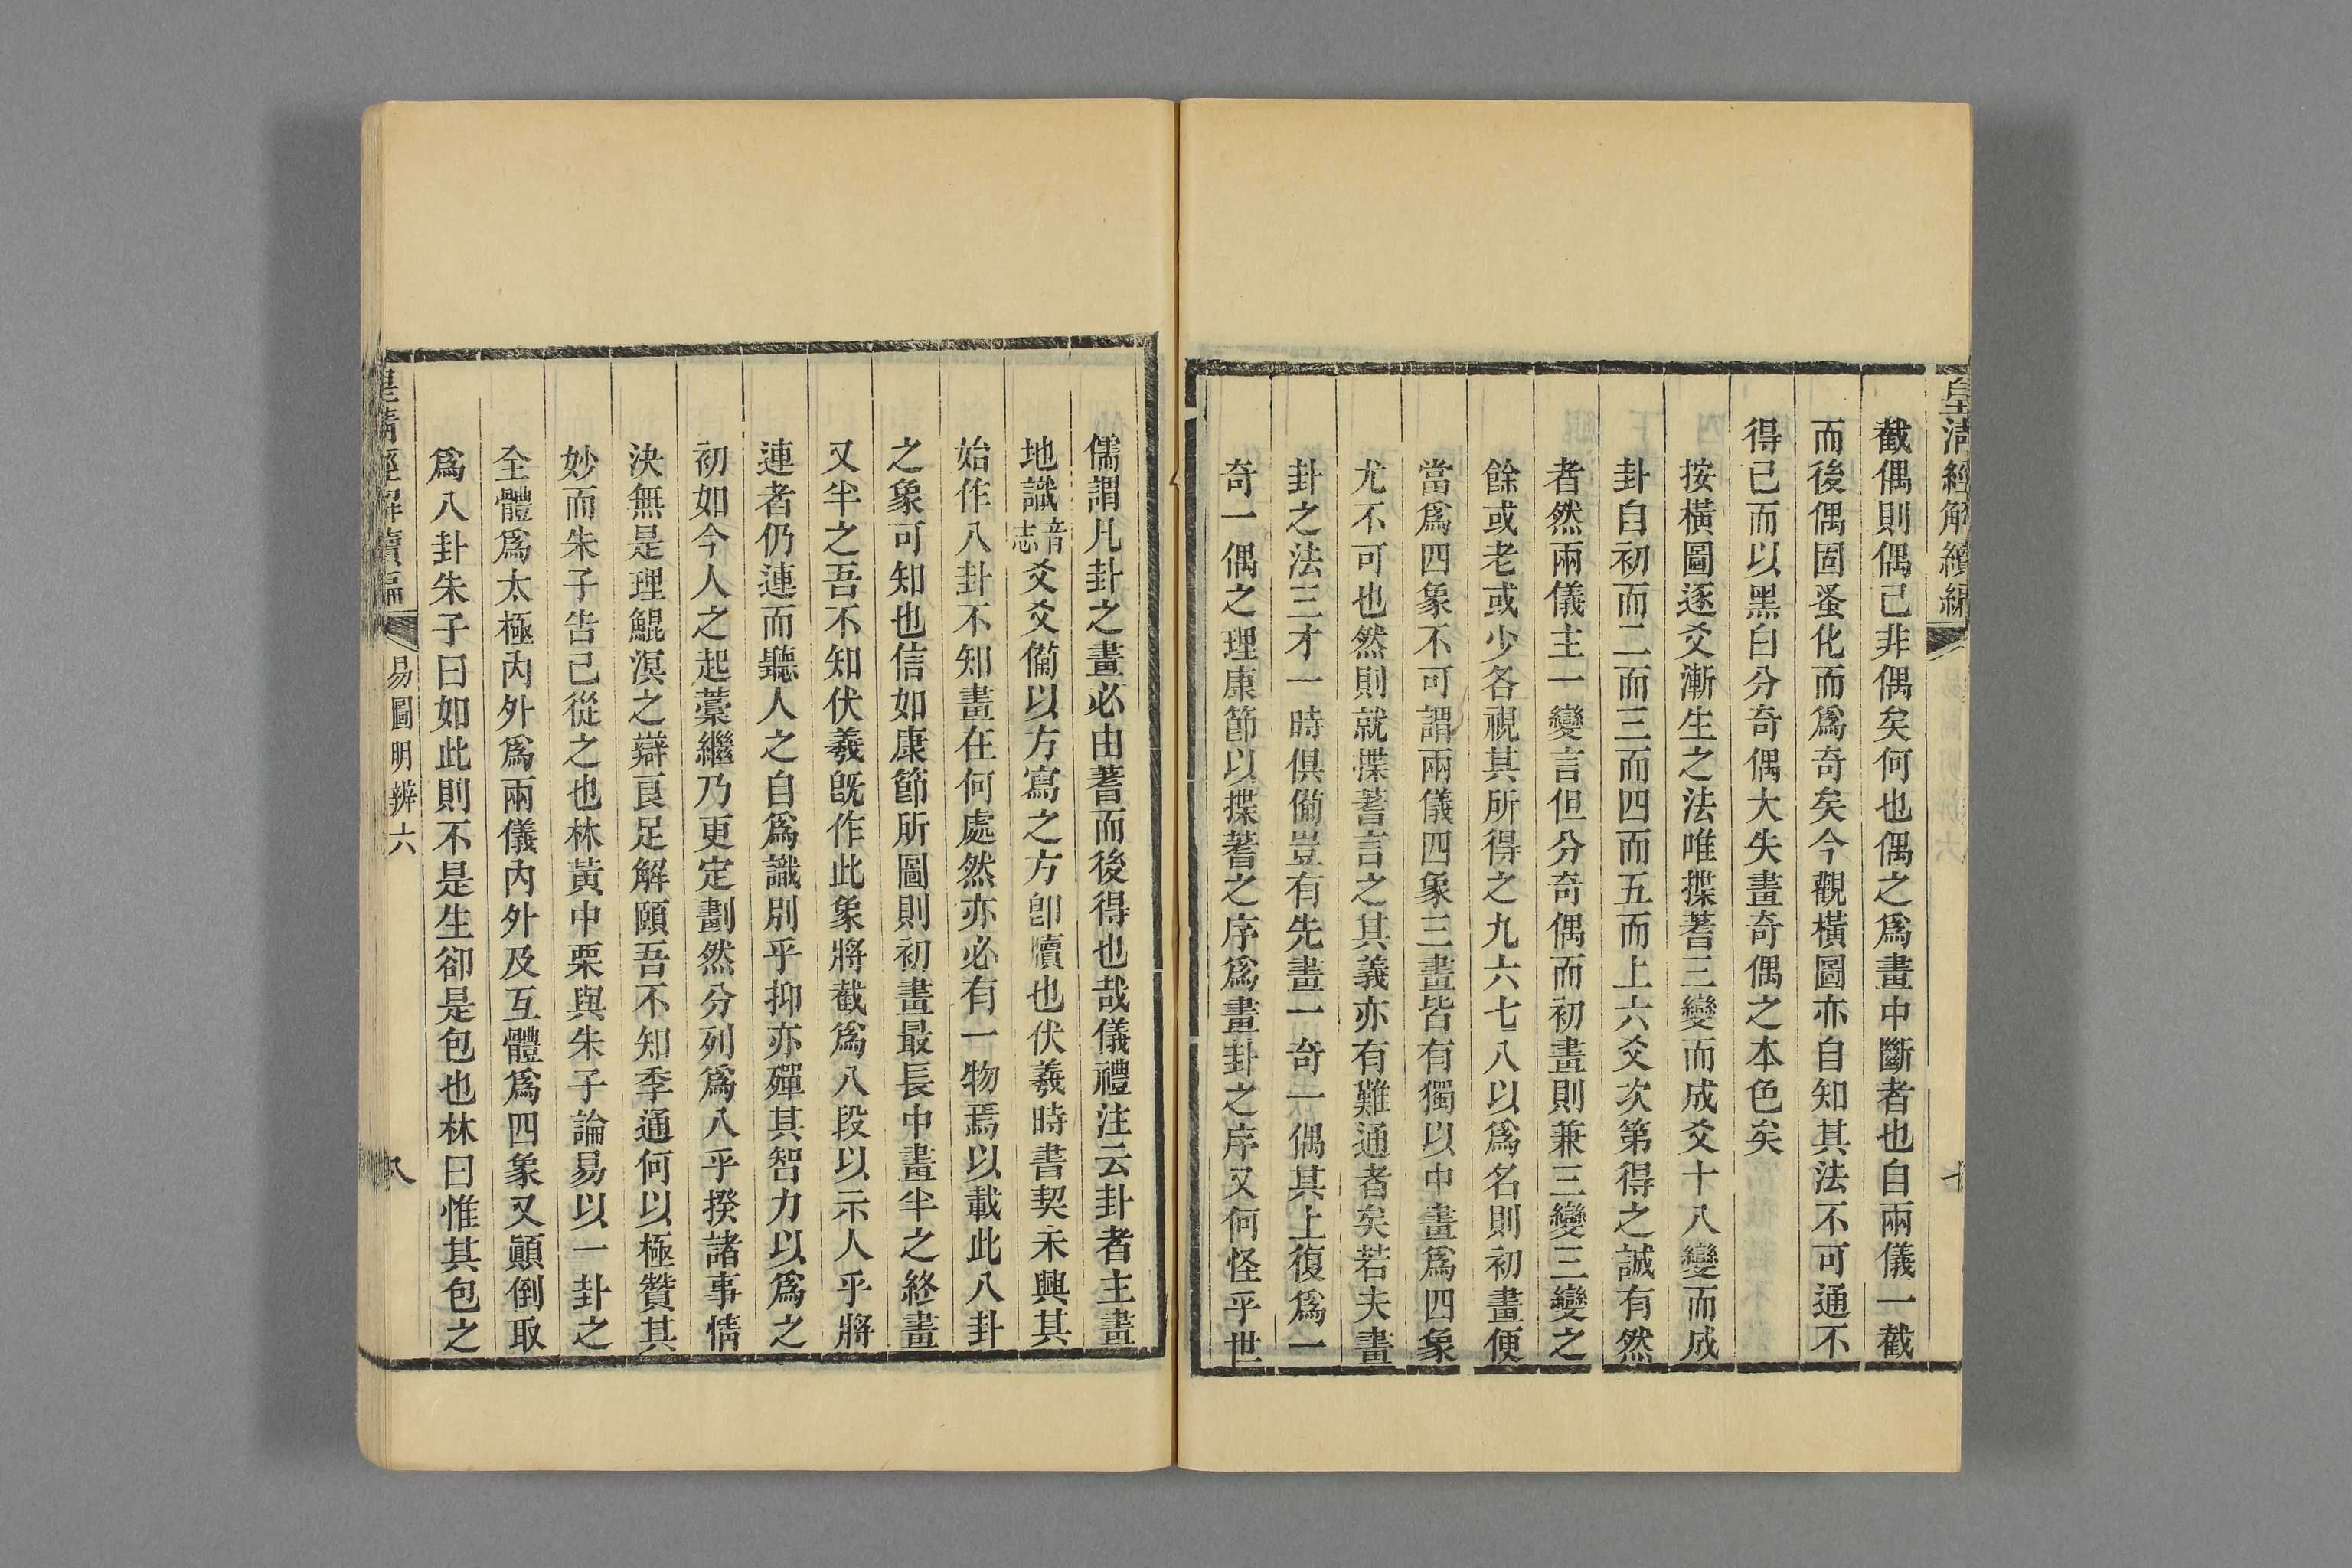 皇清經解續編
七
截偶則偶已非偶矣何也偶之爲畫中斷者也自兩儀一截
而後偶固蚤化而爲奇矣今觀橫圖亦自知其法不可通不
得已而以黑白分奇偶大失畫奇偶之本色矣
按橫圖逐爻漸生之法唯揲蓍三變而成爻十八變而成
卦自初而二而三而四而五而上六爻次第得之誠有然
者然兩儀主一變言但分奇偶而初畫則兼三變三變之
餘或老或少各視其所得之九六七八以爲名則初畫便
當爲四象不可謂兩儀四象三畫皆有獨以中畫爲四象
尤不可也然則就揲蓍言之其義亦有難通者矣若夫畫
卦之法三才一時俱僃豈有先畫一奇一偶其上復爲一
奇一偶之理康節以揲蓍之序爲畫卦之序又何怪乎世
儒謂凡卦之畫必由蓍而後得也哉儀禮注云卦者主畫
地識音志爻爻僃以方寫之方卽牘也伏羲時書契未興其
始作八卦不知畫在何處然亦必有一物焉以載此八卦
之象可知也信如康節所圖則初畫最長中畫半之終畫
又半之吾不知伏羲旣作此象將截爲八段以示人乎將
連者仍連而聽人之自爲識別乎抑亦殫其智力以爲之
初如今人之起藁繼乃更定劃然分列爲八乎揆諸事情
決無是理鯤溟之辯良足解頤吾不知季通何以極贊其
妙而朱子吿已從之也林黃中栗與朱子論易以一卦之
全體爲太極內外爲兩儀內外及互體爲四象又顚倒取
爲八卦朱子曰如此則不是生卻是包也林曰惟其包之
皇清經解續編
易圖明辨六
八